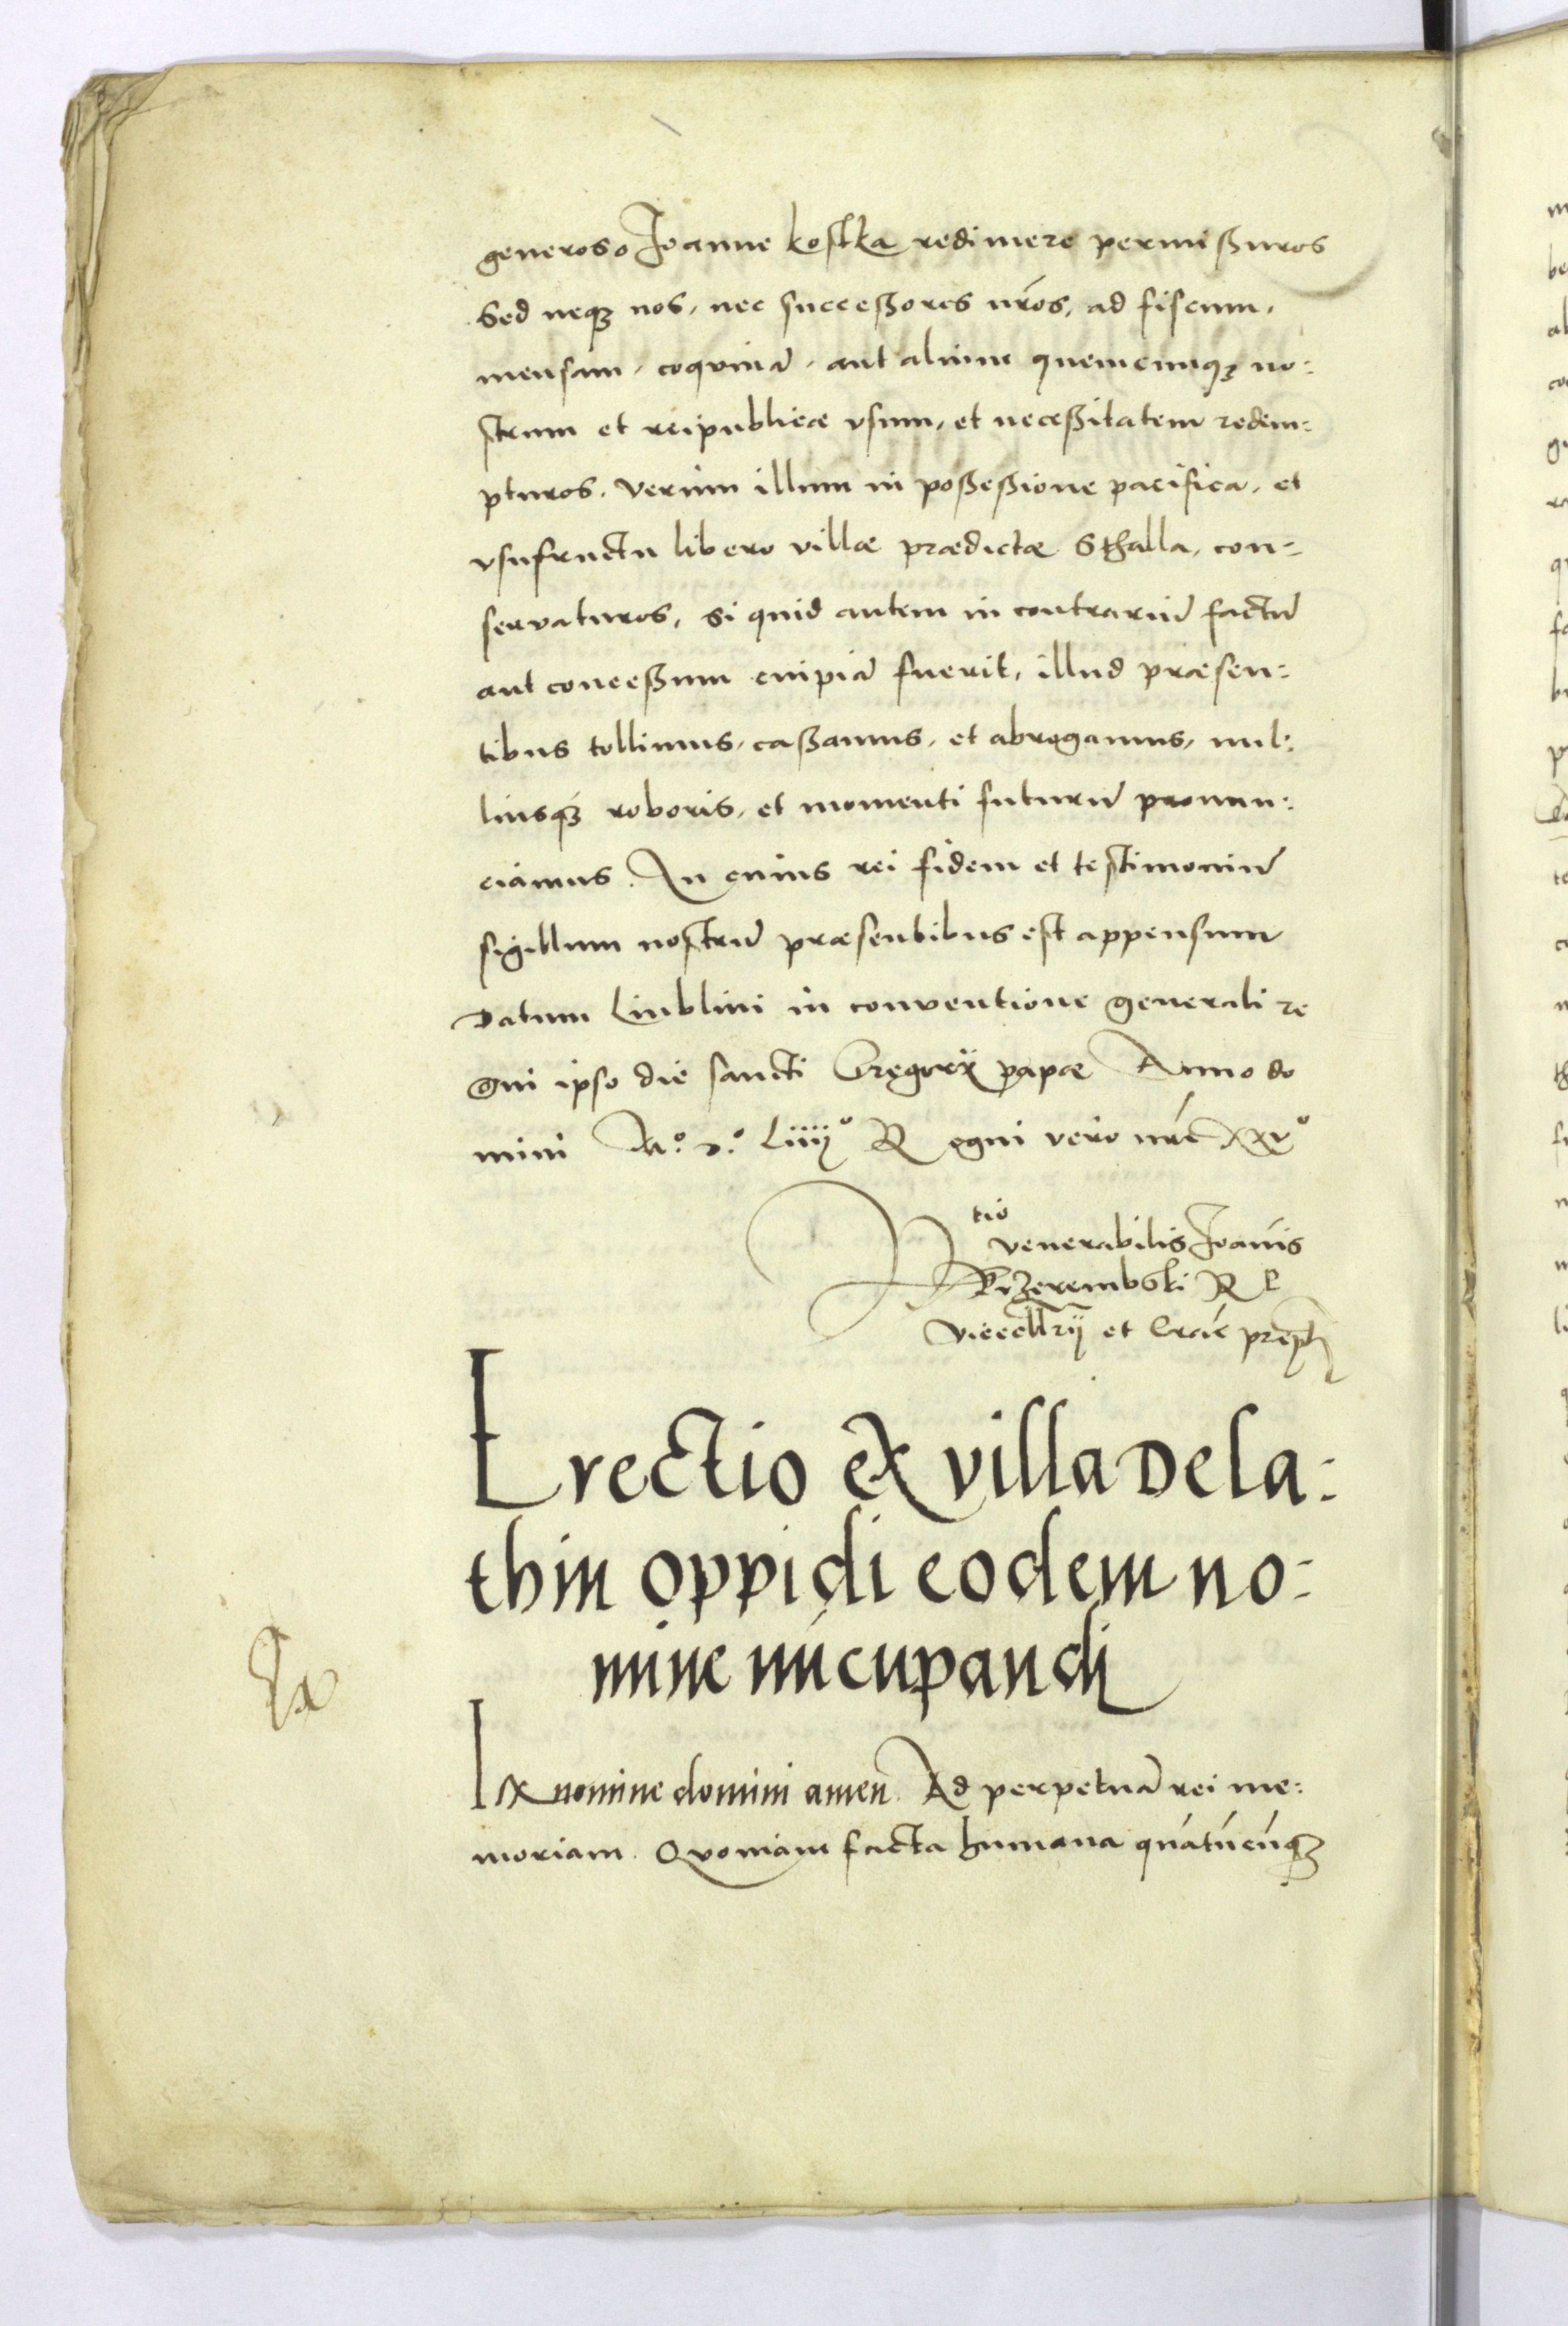 generoso Joanne kostka redimere permißuros
Sed neqꝫ nos, nec succeßores nr̃os, ad fiscum,
mensam, coqvinã, aut alium quemcunqꝫ no:
strum et reipublicæ vsum, et neceßitatem redem:
pturos. Verum illum in poßeßione pacifica, et
vsufructu libero villæ prædictæ Sthalla, con:
servaturos, si quid autem in contrariũ factũ
aut conceßum cuipiã fuerit, illud præsen:
tibus tollimus, caßamus, et abrogamus, nul:
liusqꝫ roboris, et momenti futurũ pronun:
ciamus. In cuius rei fidem et testimoniũ
sigillum nostrũ præsentibus est appensum
Datum Liublini in conventione generali re
gni ipso die sancti Gregorij papæ Anno do
mini Mº. Dº. Liiijº Regni vero nr̃i xxvº
Rtio venerabilis Joañis
Przerembski R P
Vicecllrij et Crac̃ prepti
Erectio ex villa Dela:
thin oppidi eodem no:
mine nũcupandi
Ex
In nomine domini amen. Ad perpetuã rei me:
moriam. Qvoniam facta humana quãtũcũqꝫ